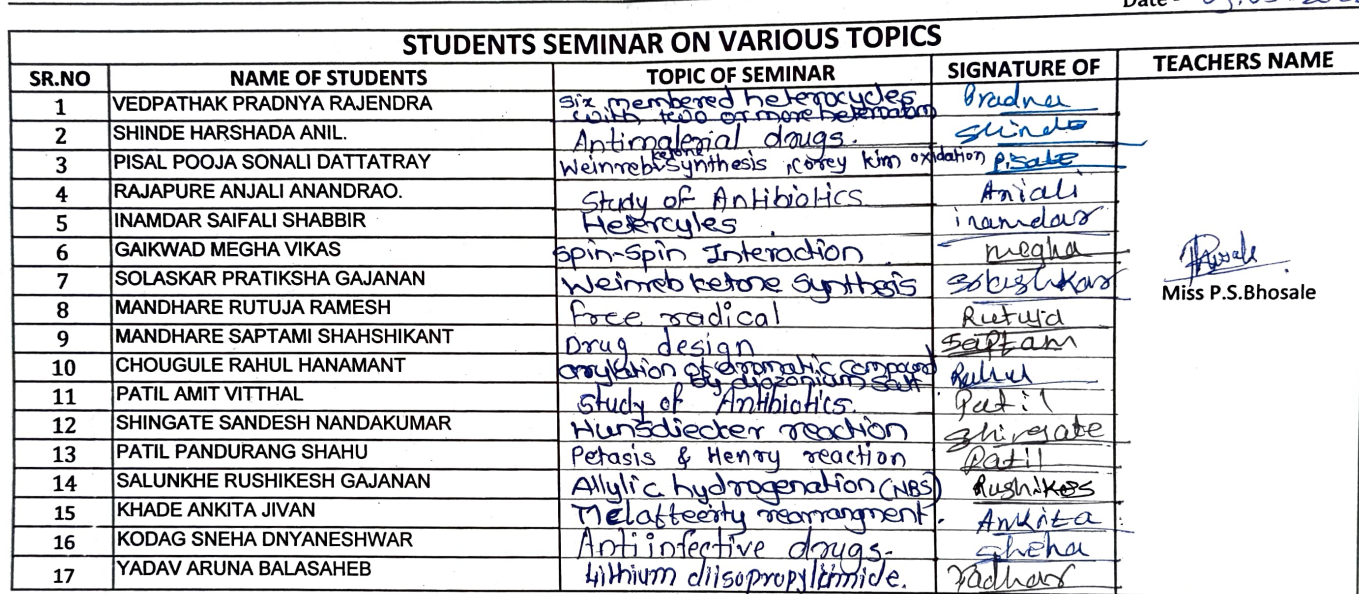 Date -
STUDENTS SEMINAR ON VARIOUS TOPICS
SR.NO NAME OF STUDENTS TOPIC OF SEMINAR SIGNATURE OF TEACHERS NAME
1 VEDPATHAK PRADNYA RAJENDRA six membered heterocycles with two or more heteroatom Pradnya
2 SHINDE HARSHADA ANIL. Antimalerial drugs. Shinde
3 PISAL POOJA SONALI DATTATRAY Weinreb ketone synthesis, corey kim oxidation Pisale
4 RAJAPURE ANJALI ANANDRAO. Study of Antibiotics Anjali
5 INAMDAR SAIFALI SHABBIR Hetercyles. inamdar
6 GAIKWAD MEGHA VIKAS Spin-Spin Interaction. megha
7 SOLASKAR PRATIKSHA GAJANAN Weinreb ketone Synthesis
8 MANDHARE RUTUJA RAMESH free radical Rutuja
9 MANDHARE SAPTAMI SHAHSHIKANT Drug design Saptam
10 CHOUGULE RAHUL HANAMANT arylation of aromatic compound by diazonium salt Rahul
11 PATIL AMIT VITTHAL Study of Antibiotics. Patil
12 SHINGATE SANDESH NANDAKUMAR Hunsdiecker reaction Shingate
13 PATIL PANDURANG SHAHU Petasis & Henry reaction Patil
14 SALUNKHE RUSHIKESH GAJANAN Allylic hydrogenation (NBS) Rushikes
15 KHADE ANKITA JIVAN rearrangment. Ankita
16 KODAG SNEHA DNYANESHWAR Antiinfective drugs. Sneha
17 YADAV ARUNA BALASAHEB Lithium diisopropylimide. Yadhav
Bhosale
Miss P.S.Bhosale